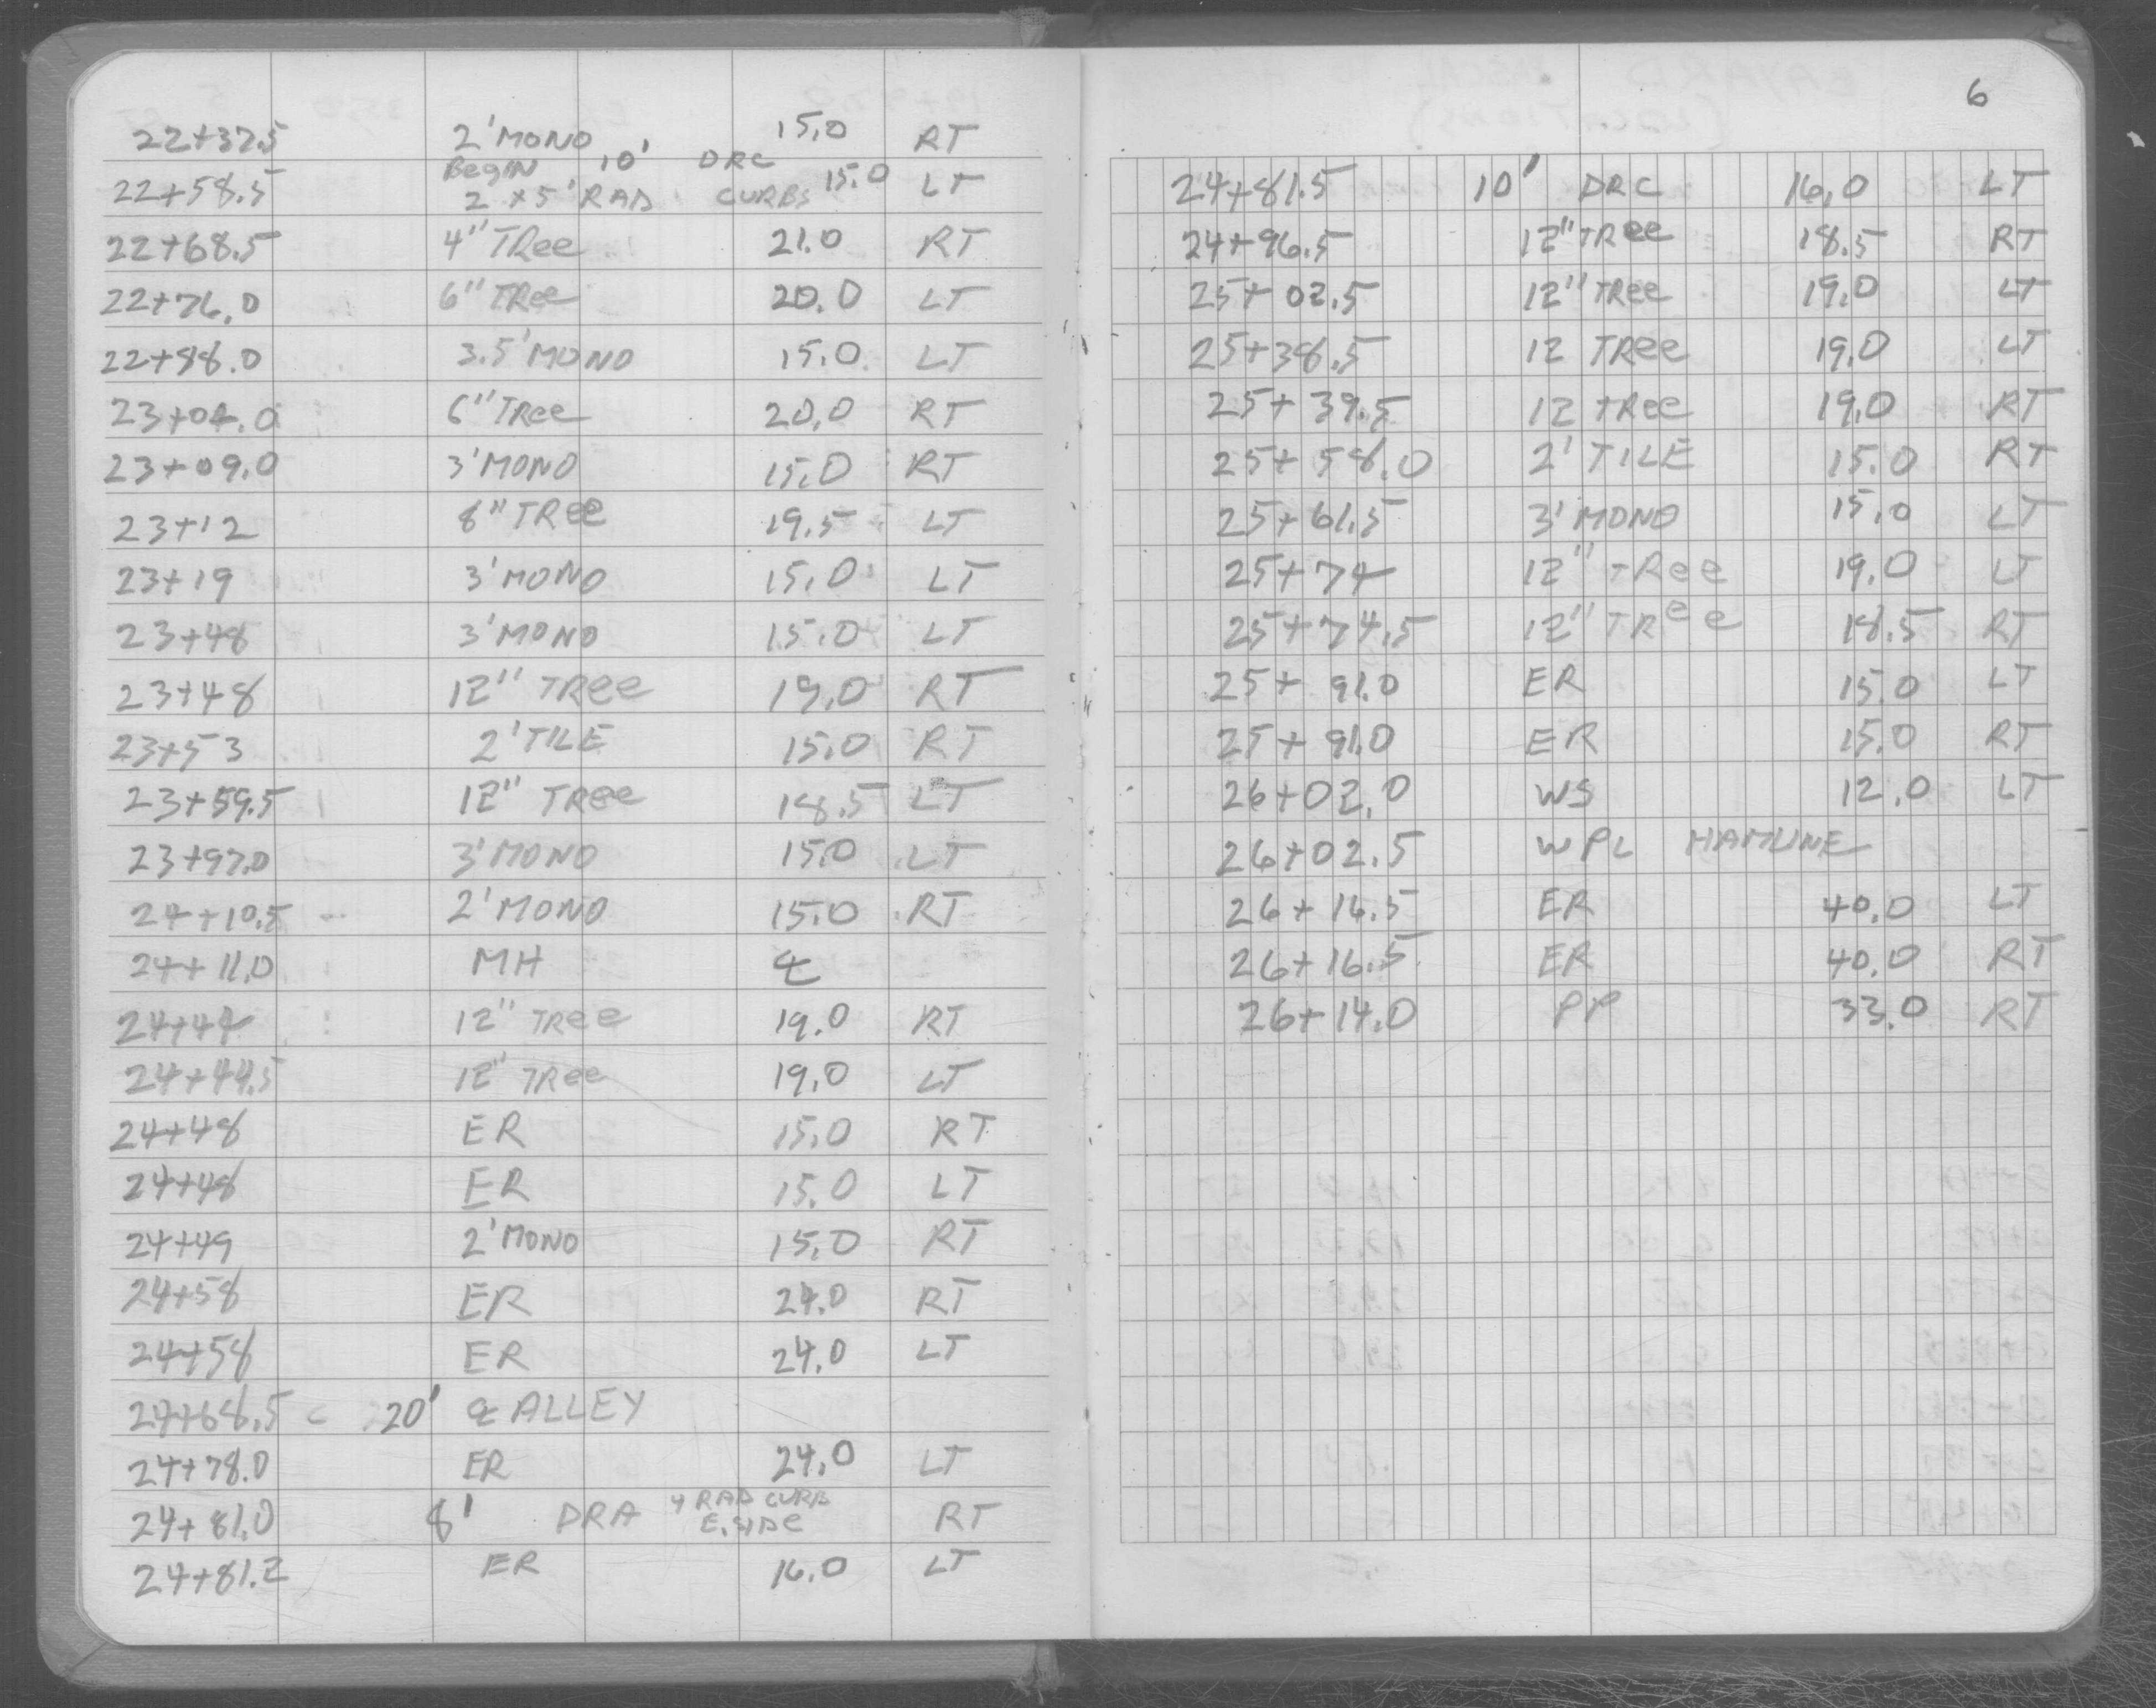 22+37.5 2' MONO 15.0 RT
22+58.5 Begin 10' DRC
2 x 5' RAD CURBS 15.0 LT
22+68.5 4" TRee 21.0 RT
22+76.0 6" TRee 20.0 LT
22+88.0 3.5' MONO 15.0 LT
23+04.0 6" TRee 20.0 RT
23+09.0 3' MONO 15.0 RT
23+12 8" TRee 19.5 LT
23+19 3' MONO 15.0 LT
23+48 3' MONO 15.0 LT
23+48 12" TRee 19.0 RT
23+53 2' TILE 15.0 RT
23+59.5 12" TRee 18.5 LT
23+97.0 3' MONO 15.0 LT
24+10.5 2' MONO 15.0 RT
24+11.0 MH ℄
24+44 12" TRee 19.0 RT
24+44.5 12" TRee 19.0 LT
24+48 ER 15.0 RT
24+48 ER 15.0 LT
24+49 2' MONO 15.0 RT
24+58 ER 24.0 RT
24+58 ER 24.0 LT
24+68.5 20' ℄ ALLEY
24+78.0 ER 24.0 LT
24+81.0 8' DRA 4 RAD CURB E. SIDe RT
24+81.2 ER 16.0 LT
6
24+81.5 10' DRC 16.0 LT
24+96.5 12" TRee 18.5 RT
25+02.5 12" TRee 19.0 LT
25+38.5 12 TRee 19.0 LT
25+39.5 12 TRee 19.0 RT
25+58.0 2' TILE 15.0 RT
25+61.5 3' MONO 15.0 LT
25+74 12" TRee 19.0 LT
25+74.5 12" TRee 18.5 RT
25+91.0 ER 15.0 LT
25+91.0 ER 15.0 RT
26+02.0 WS 12.0 LT
26+02.5 WPL HAMLINE
26+16.5 ER 40.0 LT
26+16.5 ER 40.0 RT
26+14.0 PP 33.0 RT